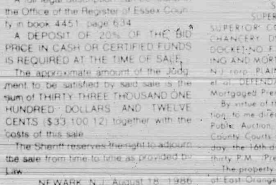 the Office of the Register of Essex Coun-
ty in book 4451, page 634
A DEPOSIT OF 20% OF THE BID
PRICE IN CASH OR CERTIFIED FUNDS
IS REQUIRED AT THE TIME OF SALE.
The approximate amount of the Judg-
ment to be satisfied by said sale is the
sum of THIRTY THREE THOUSAND ONE
HUNDRED DOLLARS AND TWELVE
CENTS ($33,100.12) together with the
costs of this sale
The Sheriff reserves the right to adjourn
the sale from time to time as provided by
Law
NEWARK, N.J. August 18, 1986
SUPERIOR CO
CHANCERY DI
DOCKET NO F
ING AND MORT
N.J. corp. PLAIN
DEFENDANT
Mortgaged Prem
By virtue of
tion, to me direc
Public Auction,
County Courts
day, the 16th d
thirty P.M. (Pr
The property
of East Orange